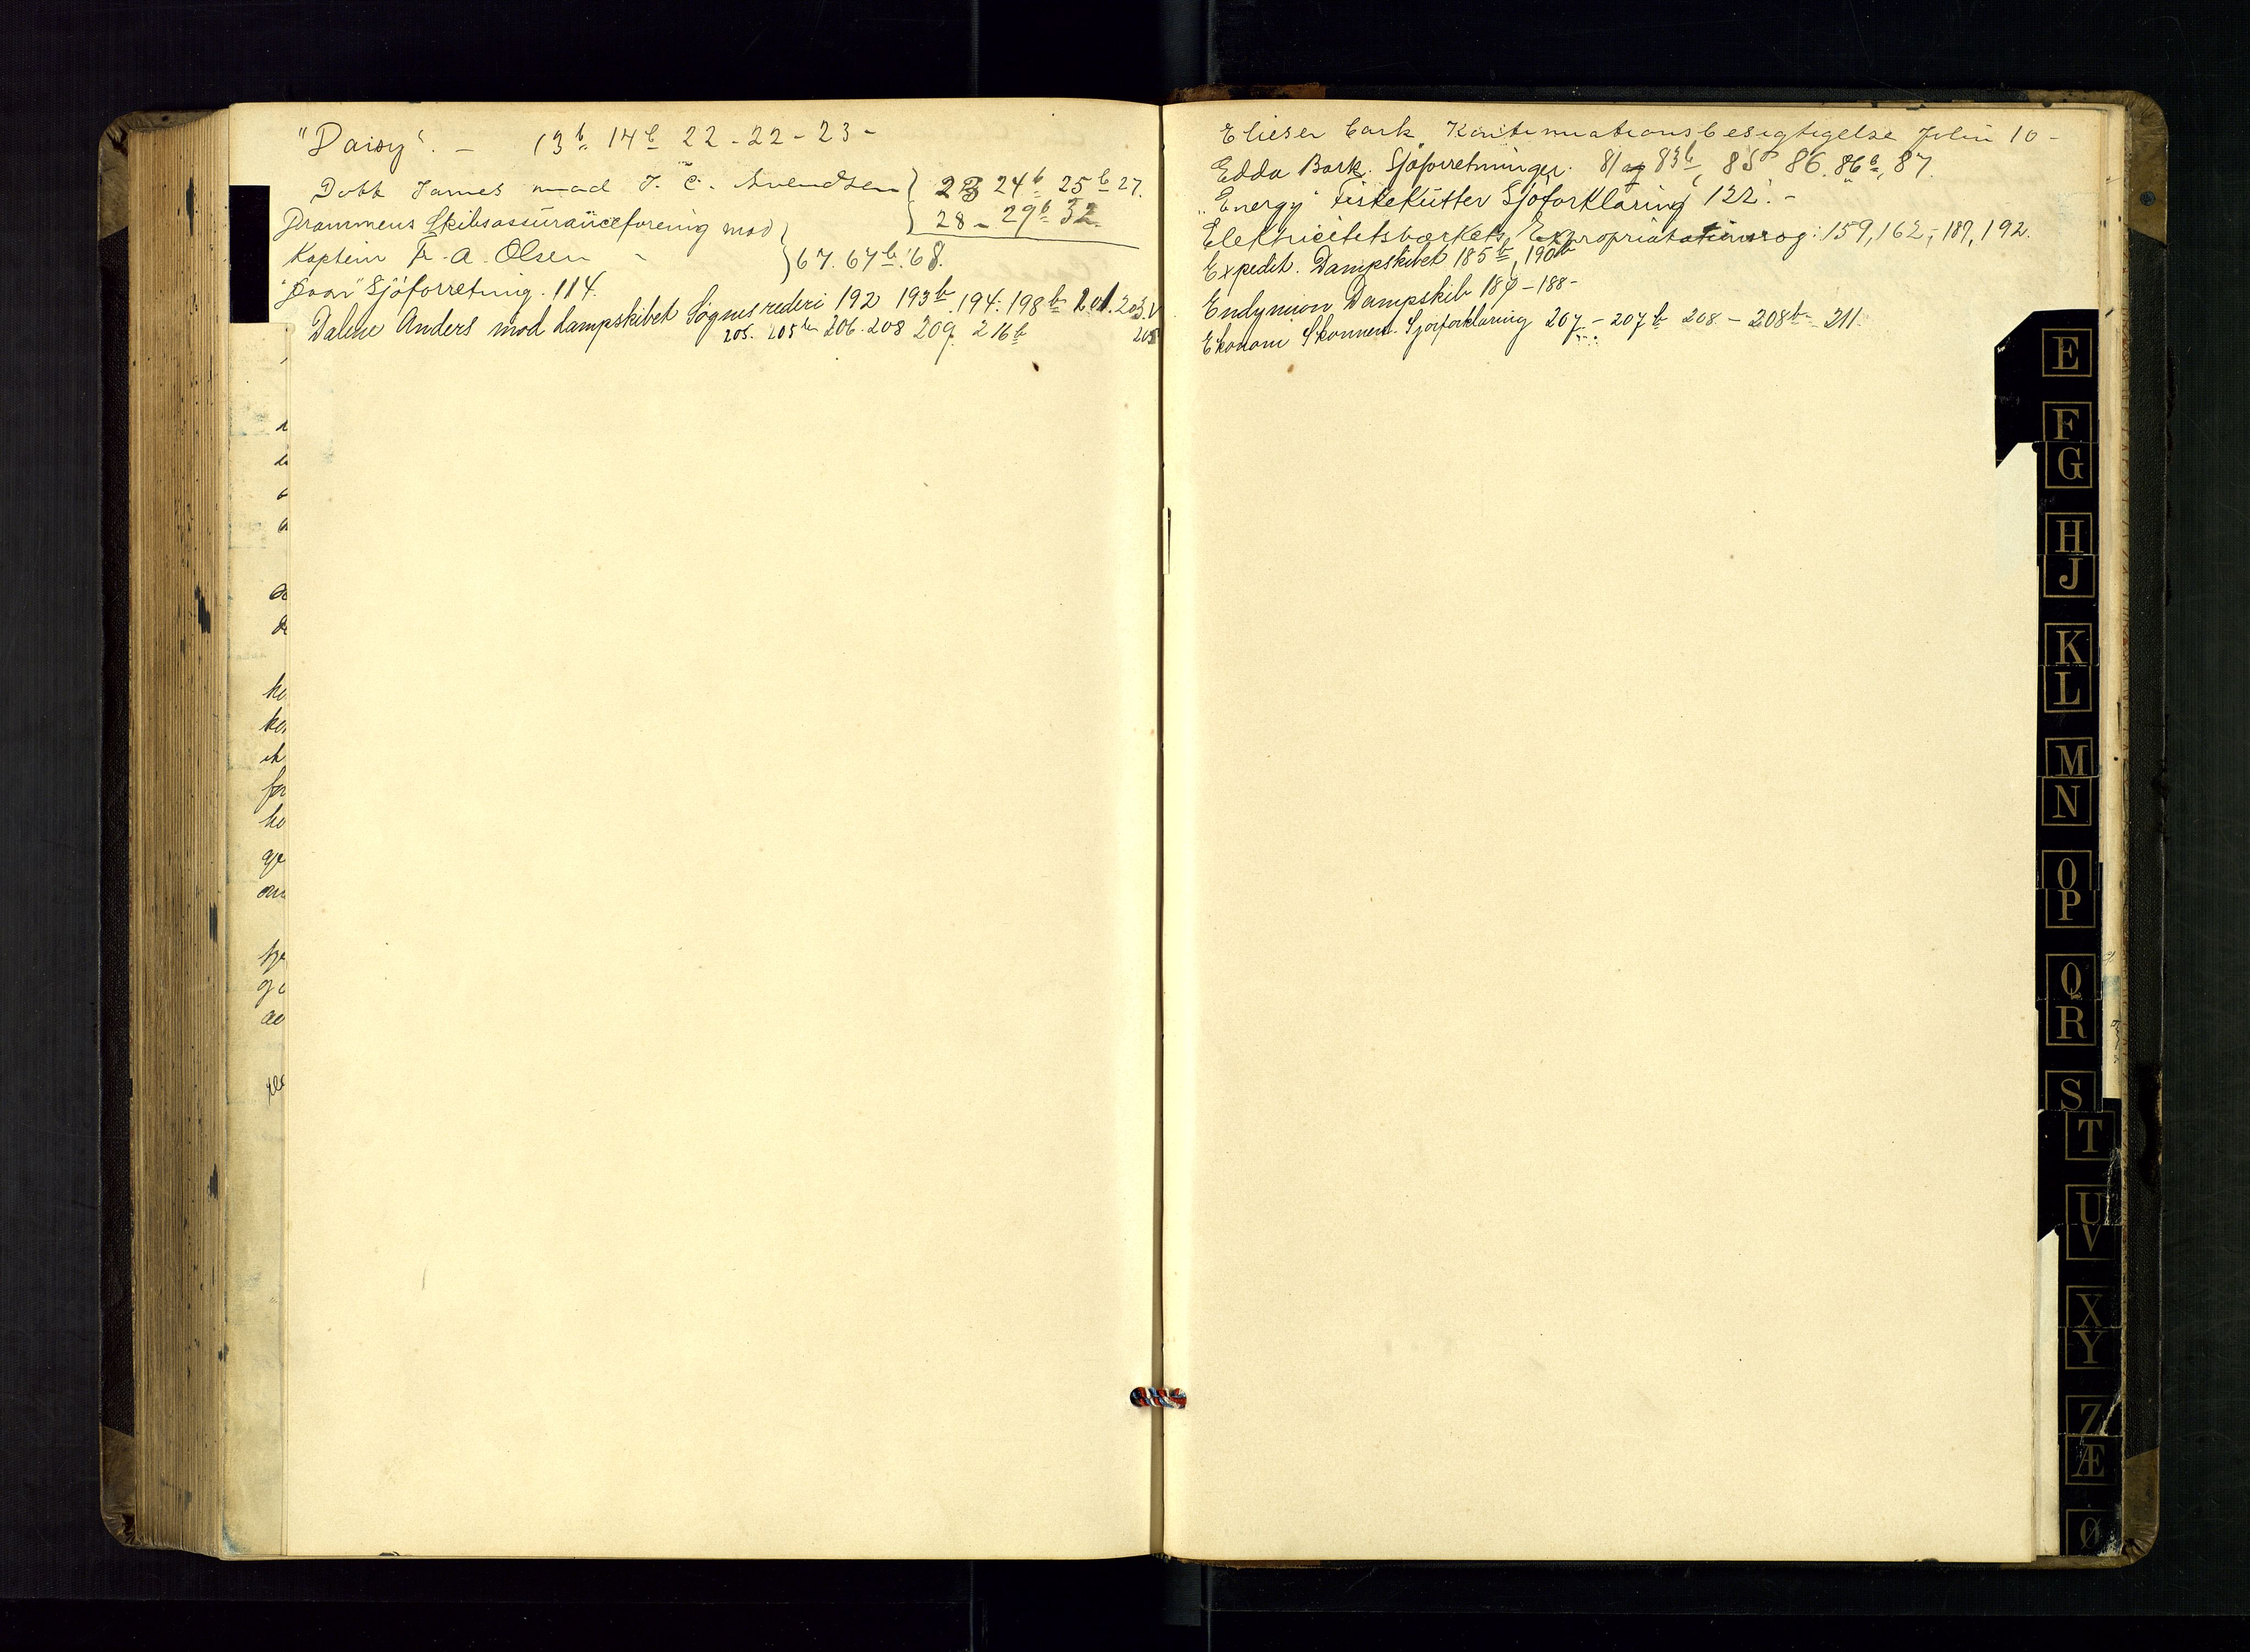 "Daisy". – 13b 14b 22 - 22 - 23 -
Dobb James mod J. C. Svendsen } 23 24b 25b 27.
} 28 - 29b 32
Drammens Skibsassuranceforening mod
Kaptein Fr. A. Olsen - } 67. 67b. 68.
Sjöforretning. 114.
Dalene Anders mod dampskibet Sögnes rederi 192 193b. 194. 198b 201. 203.
205. 205b 206. 208 209. 216b
Elieser bark Kontinuationsbesigtigelse Folie 10 -
Edda Bark. Sjöforretninger. 81 og 83b, 85b 86. 86b, 87.
"Energy" Fiskekutter Sjöforklaring 122. -
Elektricitetsværkets Expropriationssag: 159, 162, - 189, 192.
Expedit. Dampskibet 185b, 190b
Endymion Dampskib 187 - 188 -
Ekonom Skonnert. Sjöforklaring 207 - 207b 208 - 208b - 211.
E
F
G
H
J
K
L
M
N
O
P
Q
R
S
T
U
V
X
Y
Z
Æ
Ø